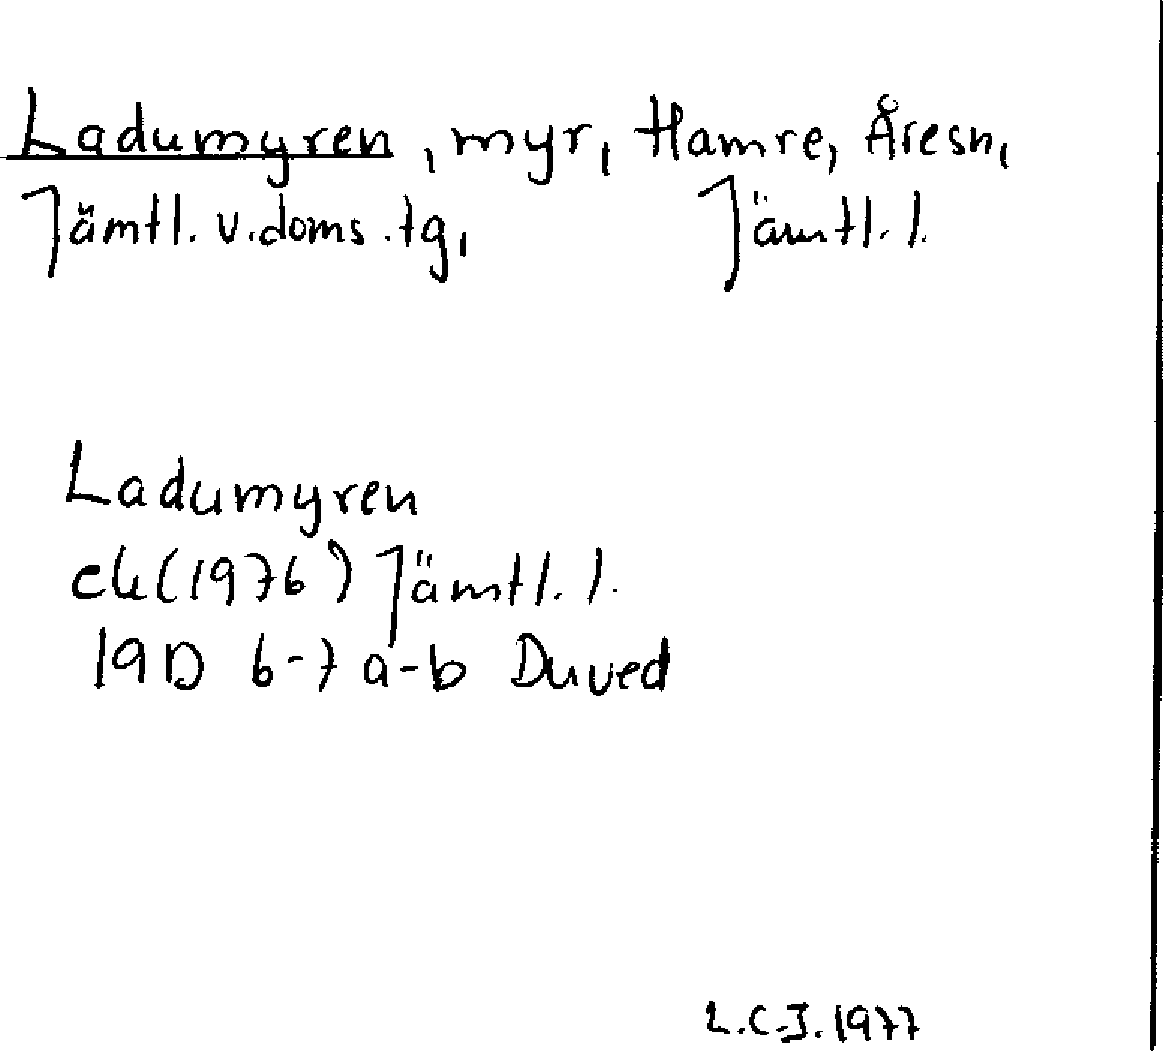 Ladumyren, myr, Hamre, Åresn,
Jämtl. v.doms.tg, Jämtl. l.
Ladumyren
ek(1976) Jämtl. l.
19D 6-7 a-b Duved
L.C-J. 1977